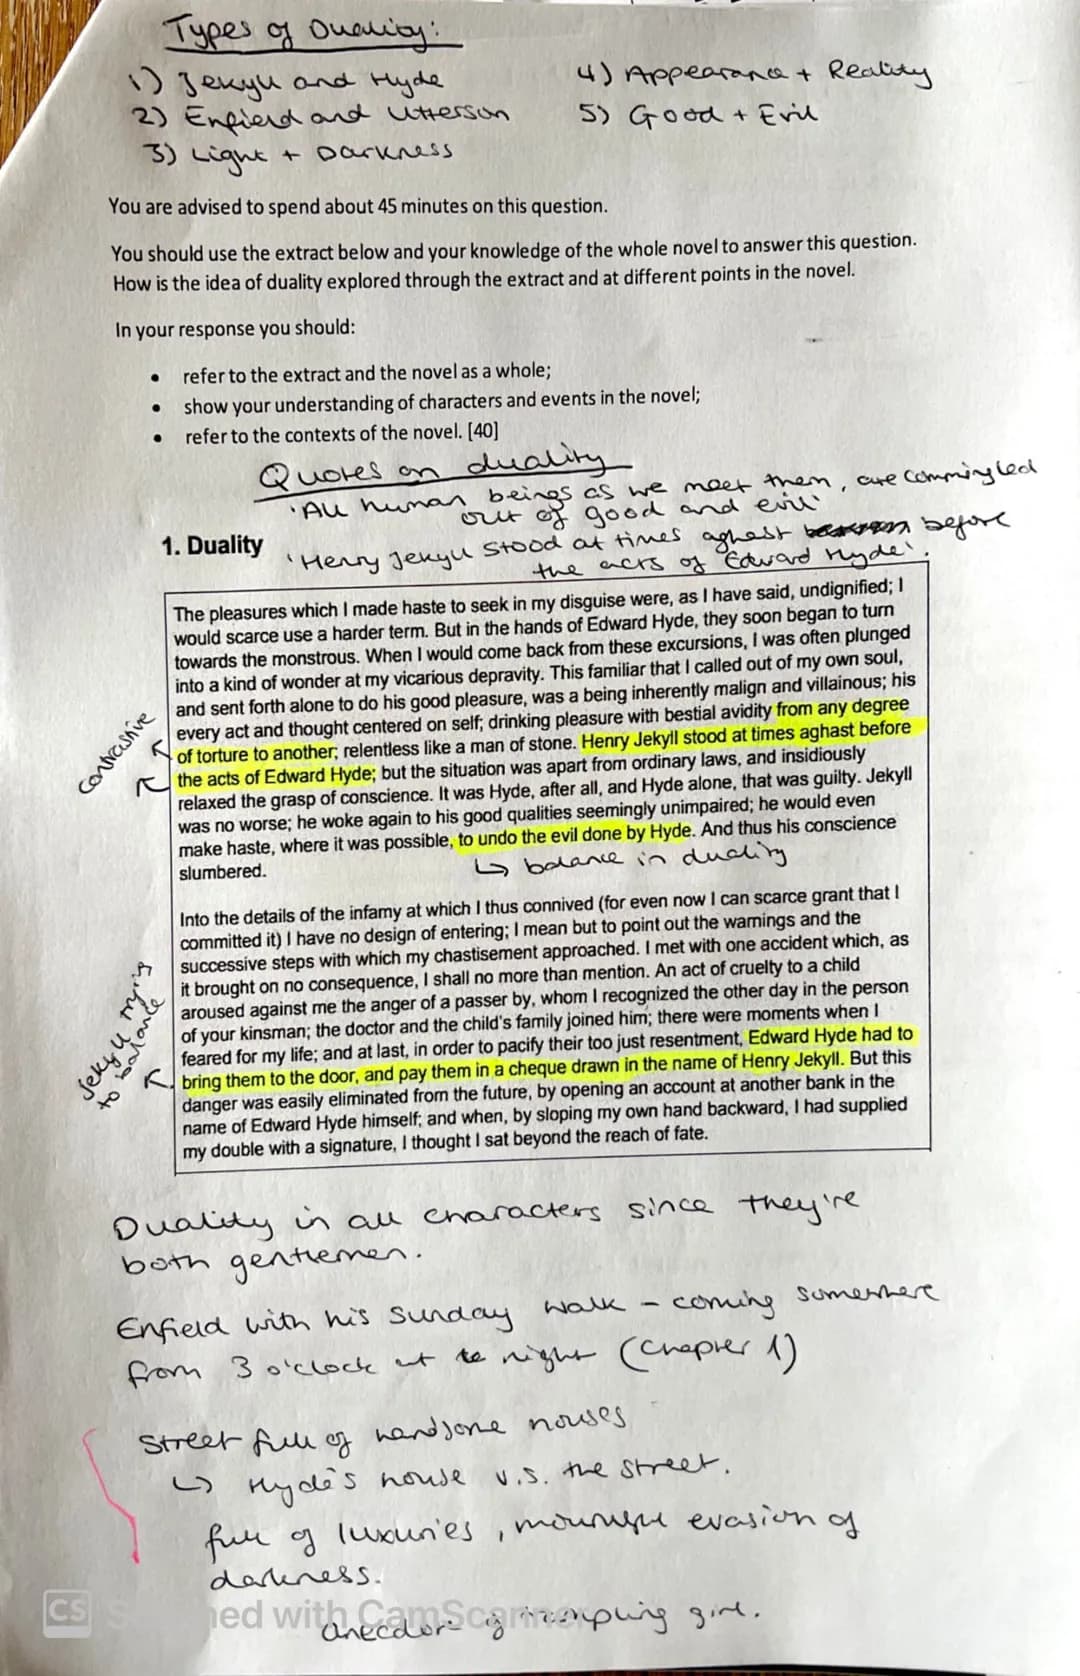 Types of Duality:
1) Jekyll and Hyde
2) Enfield and Utterson
3) Light + Darkness
4) Appearance + Reality
5) Good + Evil
You are advised to spend about 45 minutes on this question.
You should use the extract below and your knowledge of the whole novel to answer this question.
How is the idea of duality explored through the extract and at different points in the novel.
In your response you should:
• refer to the extract and the novel as a whole;
• show your understanding of characters and events in the novel;
• refer to the contexts of the novel. [40]
Quotes on duality
'All human beings as we meet them, are commingled
out of good and evil'
1. Duality
'Henry Jekyll stood at times aghast before
the acts of Edward Hyde'.
The pleasures which I made haste to seek in my disguise were, as I have said, undignified; I
would scarce use a harder term. But in the hands of Edward Hyde, they soon began to turn
towards the monstrous. When I would come back from these excursions, I was often plunged
into a kind of wonder at my vicarious depravity. This familiar that I called out of my own soul,
and sent forth alone to do his good pleasure, was a being inherently malign and villainous; his
every act and thought centered on self; drinking pleasure with bestial avidity from any degree
of torture to another; relentless like a man of stone. Henry Jekyll stood at times aghast before
the acts of Edward Hyde; but the situation was apart from ordinary laws, and insidiously
relaxed the grasp of conscience. It was Hyde, after all, and Hyde alone, that was guilty. Jekyll
was no worse; he woke again to his good qualities seemingly unimpaired; he would even
make haste, where it was possible, to undo the evil done by Hyde. And thus his conscience
slumbered.
Contrastive
↳ balance in duality
Into the details of the infamy at which I thus connived (for even now I can scarce grant that I
committed it) I have no design of entering; I mean but to point out the warnings and the
successive steps with which my chastisement approached. I met with one accident which, as
it brought on no consequence, I shall no more than mention. An act of cruelty to a child
aroused against me the anger of a passer by, whom I recognized the other day in the person
of your kinsman; the doctor and the child's family joined him; there were moments when I
feared for my life; and at last, in order to pacify their too just resentment, Edward Hyde had to
bring them to the door, and pay them in a cheque drawn in the name of Henry Jekyll. But this
danger was easily eliminated from the future, by opening an account at another bank in the
name of Edward Hyde himself; and when, by sloping my own hand backward, I had supplied
my double with a signature, I thought I sat beyond the reach of fate.
Jekyll trying
to balance
Duality in all characters since they're
both gentlemen.
Enfield with his Sunday walk - coming somewhere
from 3 o'clock at night (Chapter 1)
Street full of handsome houses
↳ Hyde's house v.s. the street.
full of luxuries, evasion of
darkness.
CS Scanned with CamScanner
trampling girl.